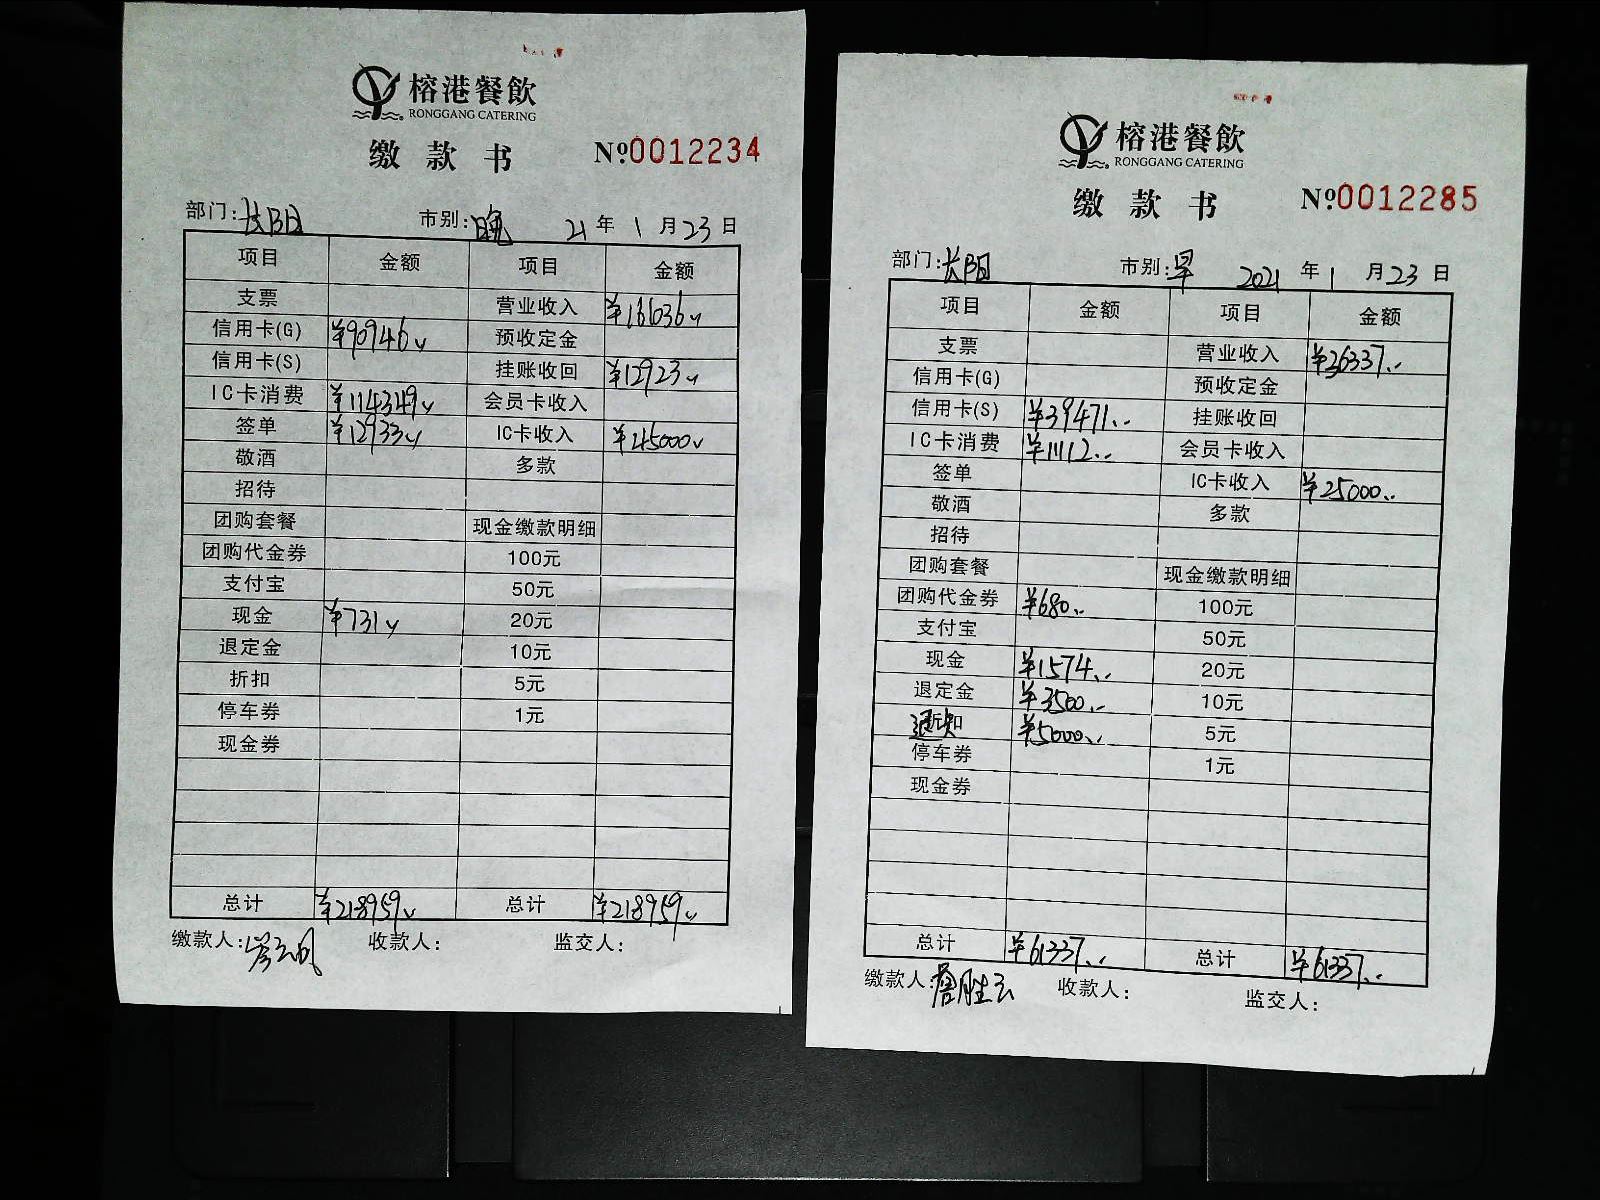 榕港餐飲
RONGGANG CATERING
缴款书 №0012234
部门:长阳 市别:晚 21年1月23日
项目 金额 项目 金额
支票 营业收入 ¥161036
信用卡(G) ¥90946 预收定金
信用卡(S) 挂账收回 ¥12923
IC卡消费 ¥114349 会员卡收入
签单 ¥12933 IC卡收入 ¥45000
敬酒 多款
招待
团购套餐 现金缴款明细
团购代金券 100元
支付宝 50元
现金 ¥731 20元
退定金 10元
折扣 5元
停车券 1元
现金券
总计 ¥218959 总计 ¥218959
缴款人: 收款人: 监交人:
榕港餐飲
RONGGANG CATERING
缴款书 №0012285
部门:长阳 市别:早 2021年1月23日
项目 金额 项目 金额
支票 营业收入 ¥36337
信用卡(G) 预收定金
信用卡(S) ¥39471 挂账收回
IC卡消费 ¥11112 会员卡收入
签单 IC卡收入 ¥25000
敬酒 多款
招待
团购套餐 现金缴款明细
团购代金券 ¥680 100元
支付宝 50元
现金 ¥1574 20元
退定金 ¥3500 10元
¥5000 5元
停车券 1元
现金券
总计 ¥61337 总计 ¥61337
缴款人:詹胜云 收款人: 监交人: